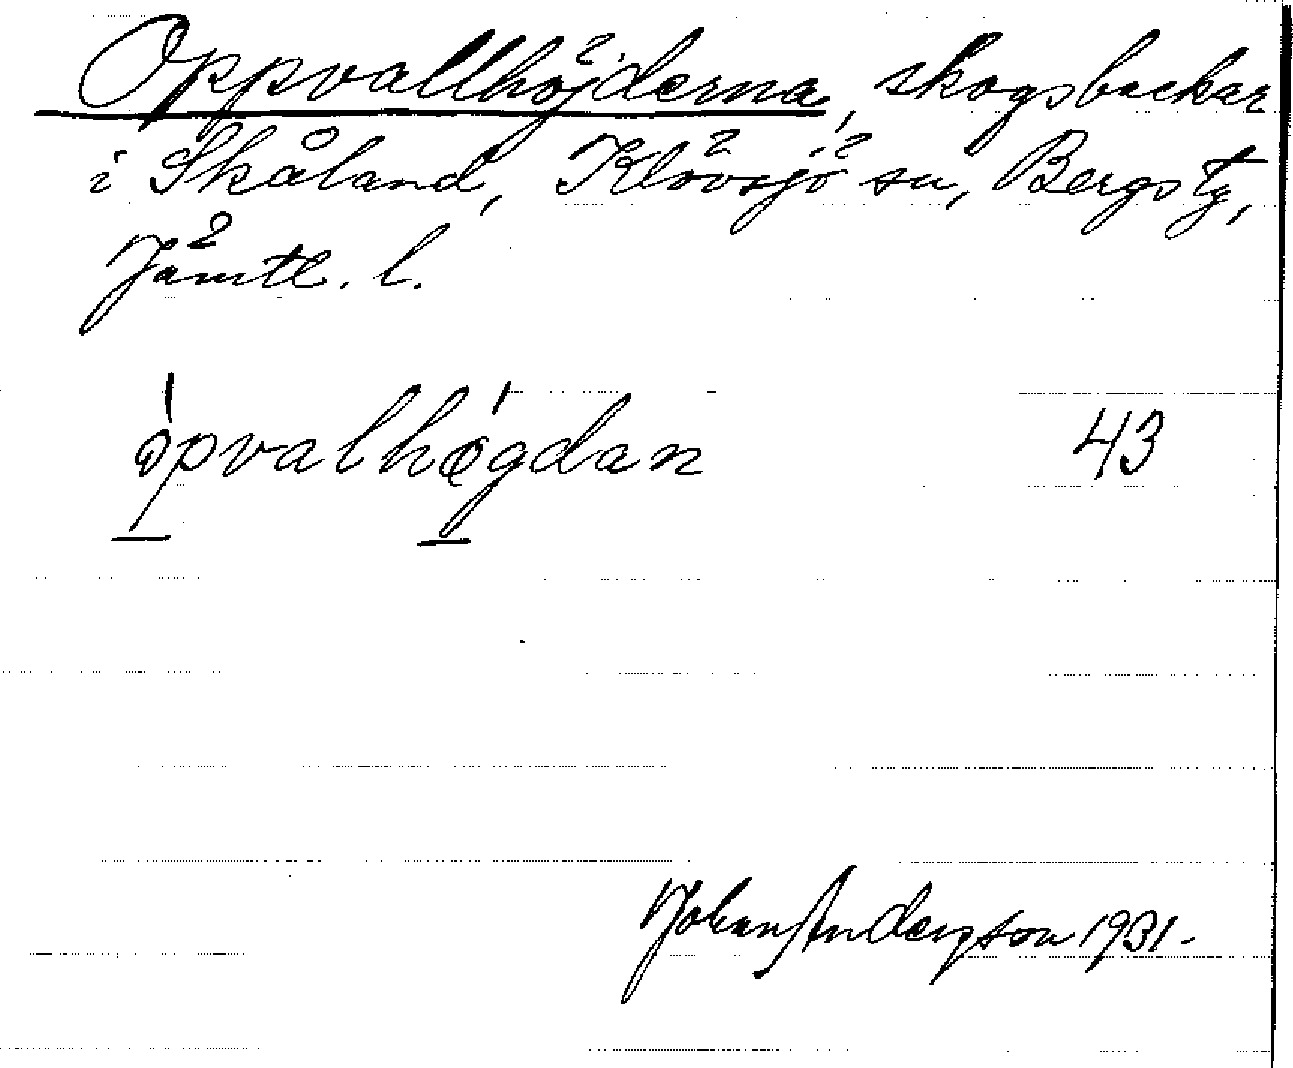 Oppvallhöjderna, skogsbackar
i Skåland, Klövsjö sn, Bergs tg,
Jämtl. l.
òpvalhøgdan 43
Johan Anderzson 1931.